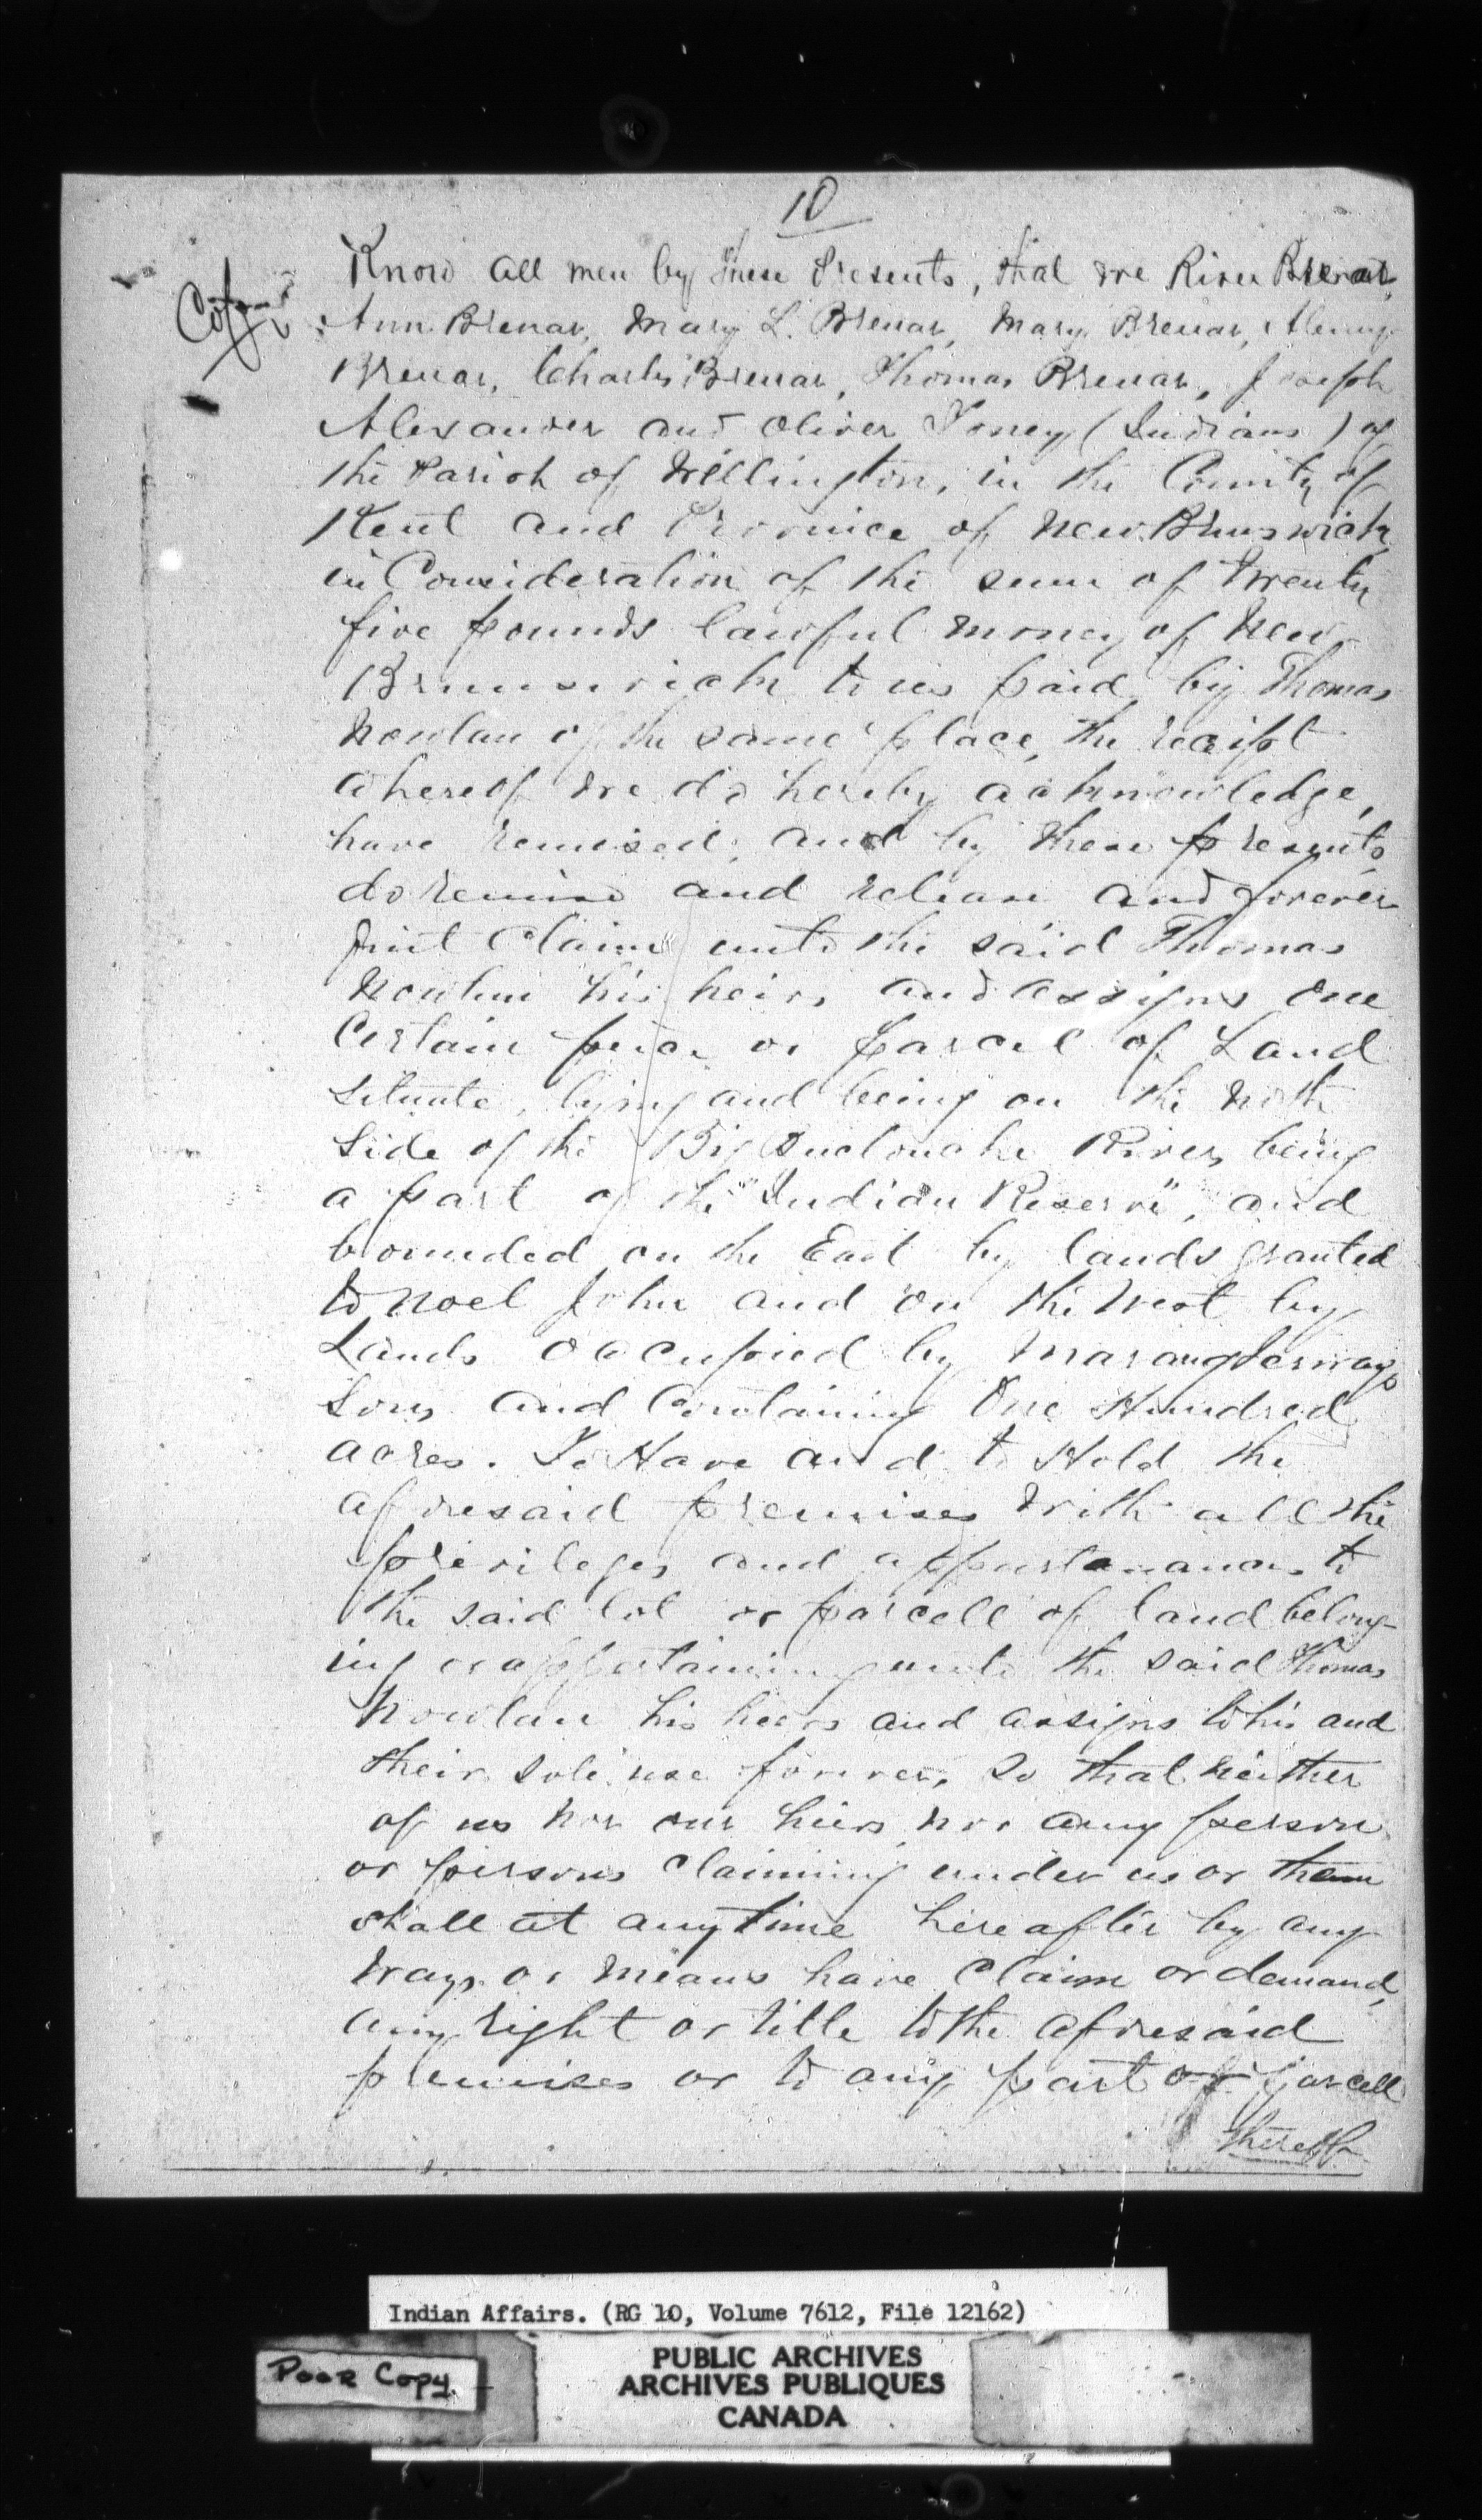 10
Copy
Know all men by these Presents, that we River Brenar,
Ann Brenar, Mary L. Brenar, Mary Brenar,
Brenar, Charles Brenar, Thomas Brenar, Joseph
Alexander and Oliver Toney (Indians) of
the Parish of Wellington, in the County of
Kent and Province of New Brunswick
in Consideration of the sum of twenty
five pounds lawful money of New
Brunswick to us paid by Thomas
Nowlan of the same place, the receipt
whereof we do hereby acknowledge,
have remised, and by these presents
do remise and release and forever
quit Claim unto the said Thomas
Nowlan his heirs and assigns one
Certain piece or parcel of Land
Situate, lying and being on the North
Side of the Big Buctouche River, being
a part of the "Indian Reserve", and
bounded on the East by lands granted
to Noel John and on the West by
Lands occupied by
Sons and Containing One Hundred
acres. To Have and to Hold the
aforesaid premises with all the
privileges and appurtanances to
the said lot or parcell of land belong-
ing or appertaining unto the said Thomas
Nowlan his heirs and assigns to his and
their sole use forever, so that neither
of us nor our heirs nor any person
or persons Claiming under us or them
shall at any time hereafter by any
ways or means have Claim or demand,
any right or title to the aforesaid
premises or to any part or parcell
thereof
Indian Affairs. (RG 10, Volume 7612, File 12162)
Poor Copy.
PUBLIC ARCHIVES
ARCHIVES PUBLIQUES
CANADA